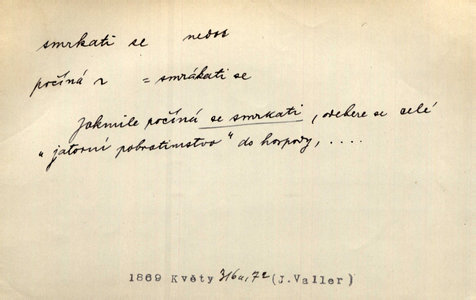 smrkati se nedok
počíná ~ = smrákati se
Jakmile počíná se smrkati, odebere se celé
"jatorní pobratimstvo" do hospody, ....
1869 Květy 316a, 72 (J. Valler)